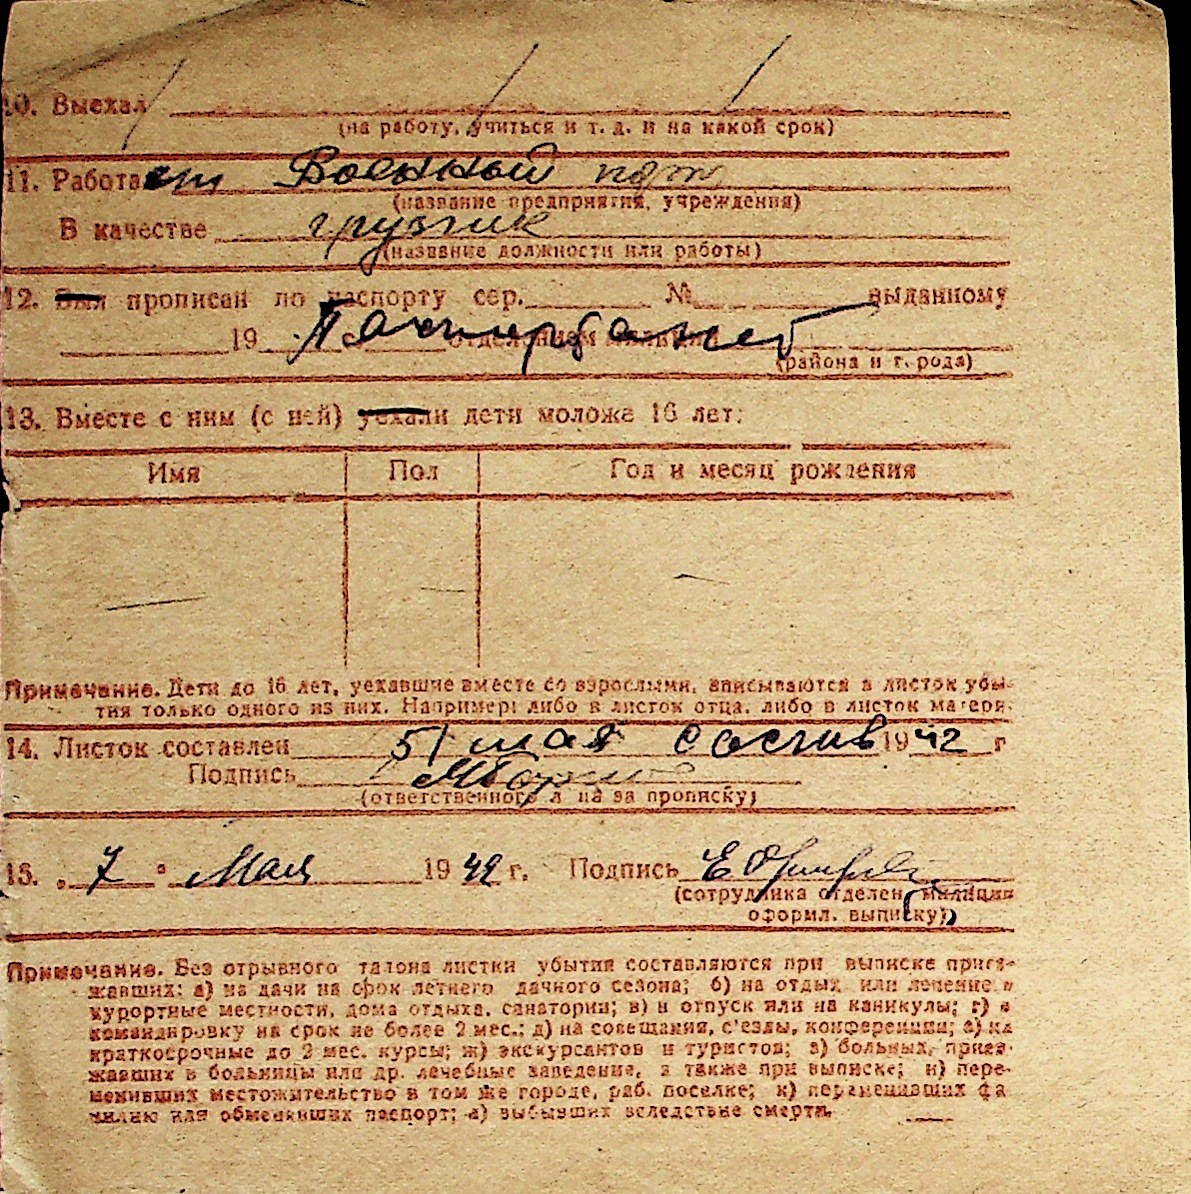 10. Выехал
(на работу, учиться и т. д. и на какой срок)
11. Работает Военный порт
(название предприятия, учреждения)
В качестве грузчик
(название должности или работы)
12. Был прописан по паспорту сер. № выданному
19 отделением милиции
(района и города)
13. Вместе с ним (с ней) уехали дети моложе 16 лет:
Имя Пол Год и месяц рождения
Примечание. Дети до 16 лет, уехавшие вместе со взрослыми, вписываются в листок убы-
тия только одного из них. Например: либо в листок отца, либо в листок матери.
14. Листок составлен 5/ мая 1942 г
Подпись
(ответственного л на за прописку)
15. „ 7 " Мая 1942 г. Подпись
(сотрудника отделен. милиции
оформл. выписку)
Примечание. Без отрывного талона листки убытия составляются при выписке приез-
жавших: а) на дачи на срок летнего дачного сезона; б) на отдых или лечение в
курортные местности, дома отдыха, санатории; в) в отпуск или на каникулы; г) в
командировку на срок не более 2 мес.; д) на совещания, с'езды, конференции; е) на
краткосрочные до 2 мес. курсы; ж) экскурсантов и туристов; з) больных, приез-
жавших в больницы или др. лечебные заведения, а также при выписке; и) пере-
менивших местожительство в том же городе, раб. поселке; к) переменивших фа
милию или обменявших паспорт; л) выбывших вследствие смерти.